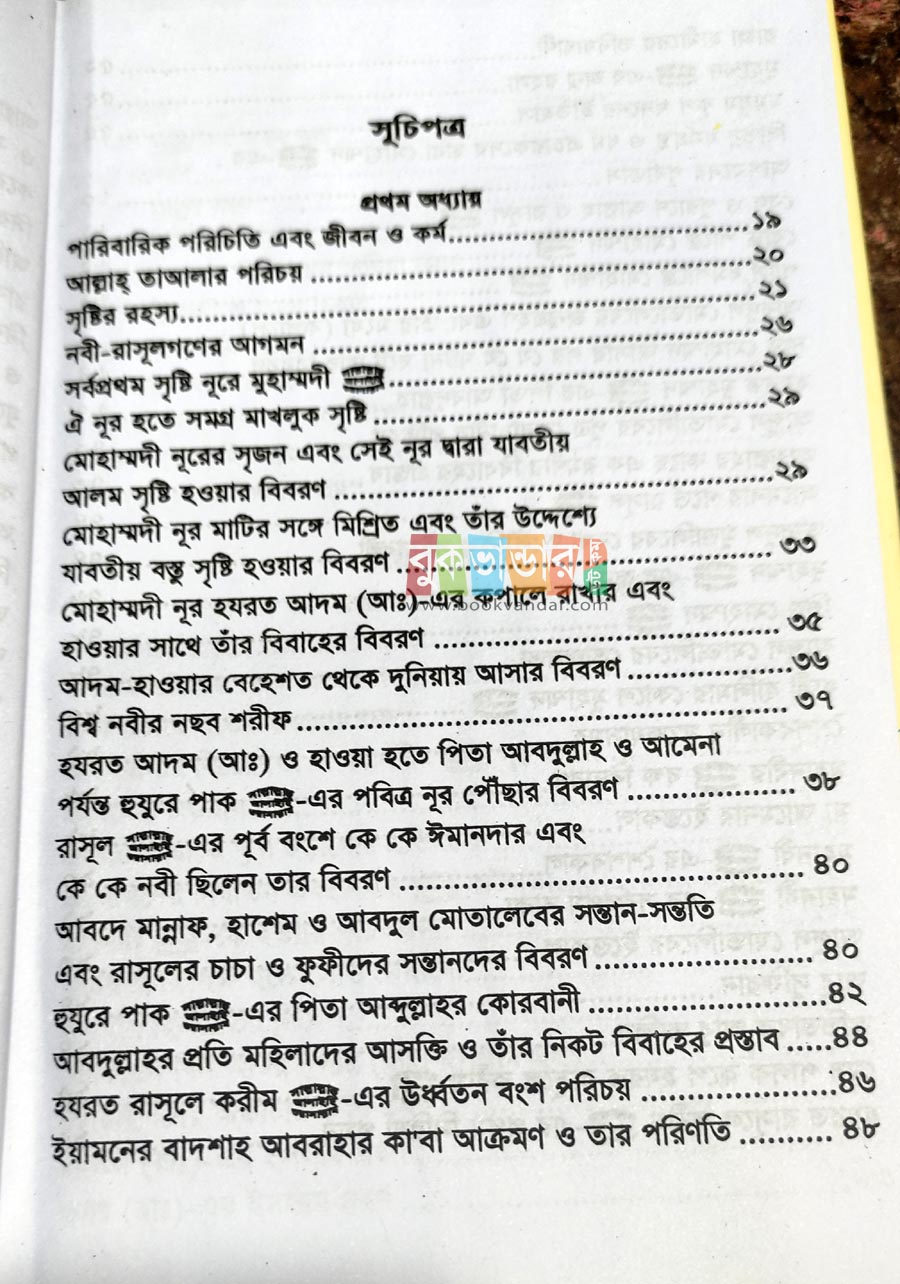 সূচিপত্র
প্রথম অধ্যায়
পারিবারিক পরিচিতি এবং জীবন ও কর্ম.......................................১৯
আল্লাহ্ তাআলার পরিচয় .......................................................২০
সৃষ্টির রহস্য.......................................................................২১
নবী-রাসূলগণের আগমন .......................................................২৬
সর্বপ্রথম সৃষ্টি নূরে মুহাম্মদী ...............................................২৮
ঐ নূর হতে সমগ্র মাখলুক সৃষ্টি ................................................২৯
মোহাম্মদী নূরের সৃজন এবং সেই নূর দ্বারা যাবতীয়
আলম সৃষ্টি হওয়ার বিবরণ .....................................................২৯
মোহাম্মদী নূর মাটির সঙ্গে মিশ্রিত এবং তাঁর উদ্দেশ্যে
যাবতীয় বস্তু সৃষ্টি হওয়ার বিবরণ ............................................. ৩৩
বুকভান্ডার ডট কম
www.bookvandar.com
মোহাম্মদী নূর হযরত আদম (আঃ)-এর কপালে রাখার এবং
হাওয়ার সাথে তাঁর বিবাহের বিবরণ .......................................... ৩৫
আদম-হাওয়ার বেহেশত থেকে দুনিয়ায় আসার বিবরণ ....................৩৬
বিশ্ব নবীর নছব শরীফ.......................................................... ৩৭
হযরত আদম (আঃ) ও হাওয়া হতে পিতা আবদুল্লাহ ও আমেনা
পর্যন্ত হুযুরে পাক -এর পবিত্র নূর পৌঁছার বিবরণ .................... ৩৮
রাসূল -এর পূর্ব বংশে কে কে ঈমানদার এবং
কে কে নবী ছিলেন তার বিবরণ ................................................ ৪০
আবদে মান্নাফ, হাশেম ও আবদুল মোতালেবের সন্তান-সন্ততি
এবং রাসূলের চাচা ও ফুফীদের সন্তানদের বিবরণ ......................... ৪০
হুযুরে পাক -এর পিতা আব্দুল্লাহর কোরবানী ..........................৪২
আবদুল্লাহর প্রতি মহিলাদের আসক্তি ও তাঁর নিকট বিবাহের প্রস্তাব .....৪৪
হযরত রাসূলে করীম -এর উর্ধ্বতন বংশ পরিচয় ....................৪৬
ইয়ামনের বাদশাহ আবরাহার কা'বা আক্রমণ ও তার পরিণতি .......... ৪৮